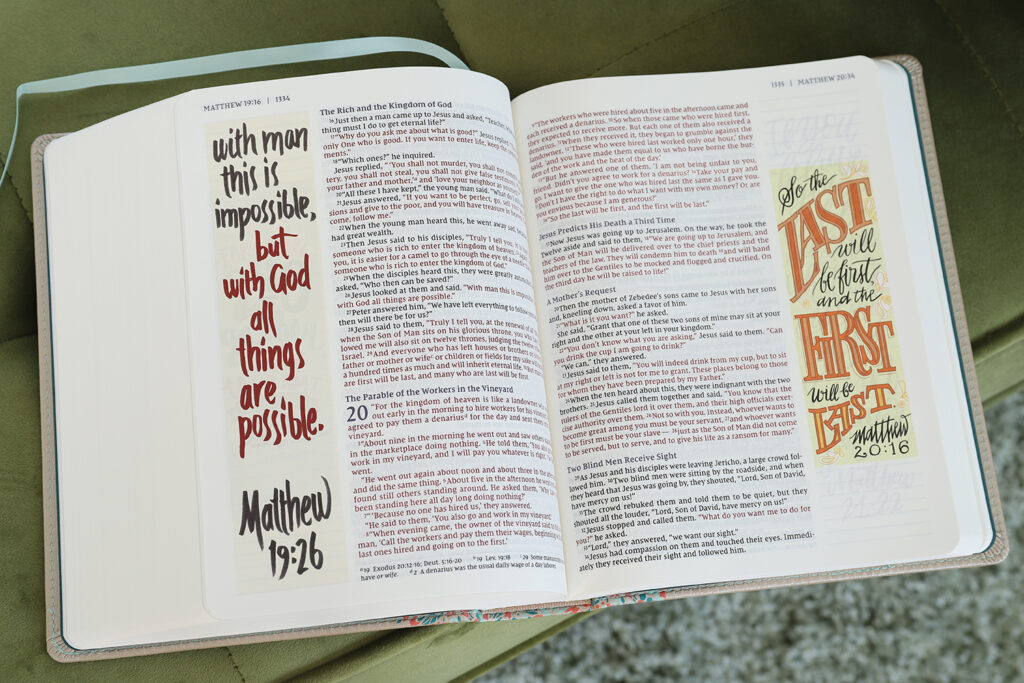 MATTHEW 19:16 | 1334
with man
this is
impossible,
but
with God
all
things
are
possible.
Matthew
19:26
The Rich and the Kingdom of God
16Just then a man came up to Jesus and asked, "Teacher,
thing must I do to get eternal life?"
17"Why do you ask me about what is good?" Jesus
only One who is good. If you want to enter life, keep the
ments."
18"Which ones?" he inquired.
Jesus replied, "'You shall not murder, you shall not
tery, you shall not steal, you shall not give false
your father and mother,'a and 'love your neighbor as
20"All these I have kept," the young man said. "What do
21Jesus answered, "If you want to be perfect, go, sell
sions and give to the poor, and you will have treasure in
come, follow me."
22When the young man heard this, he went away sad,
had great wealth.
23Then Jesus said to his disciples, "Truly I tell you,
someone who is rich to enter the kingdom of heaven.
you, it is easier for a camel to go through the eye of a
someone who is rich to enter the kingdom of God."
25When the disciples heard this, they were greatly
asked, "Who then can be saved?"
26Jesus looked at them and said, "With man this is
with God all things are possible."
27Peter answered him, "We have left everything to follow
then will there be for us?"
28Jesus said to them, "Truly I tell you, at the renewal of all
when the Son of Man sits on his glorious throne, you who
lowed me will also sit on twelve thrones, judging the twelve
Israel. 29And everyone who has left houses or brothers or
father or mother or wifeb or children or fields for my sake
a hundred times as much and will inherit eternal life.
are first will be last, and many who are last will be first.
The Parable of the Workers in the Vineyard
20 "For the kingdom of heaven is like a landowner
out early in the morning to hire workers for his
agreed to pay them a denariusd for the day and sent them
vineyard.
3"About nine in the morning he went out and saw others
in the marketplace doing nothing. 4He told them, 'You also
work in my vineyard, and I will pay you whatever is right.'
went.
"He went out again about noon and about three in the
and did the same thing. 6About five in the afternoon he went
found still others standing around. He asked them, 'Why
been standing here all day long doing nothing?'
7"'Because no one has hired us,' they answered.
"He said to them, 'You also go and work in my vineyard.'
8"When evening came, the owner of the vineyard said to
man, 'Call the workers and pay them their wages, beginning
last ones hired and going on to the first.'
a19 Exodus 20:12-16; Deut. 5:16-20 b19 Lev. 19:18 c29 Some
have or wife. d2 A denarius was the usual daily wage of a day laborer
1335 | MATTHEW 20:34
9"The workers who were hired about five in the afternoon came and
each received a denarius. 10So when those came who were hired first,
they expected to receive more. But each one of them also received a
denarius. 11When they received it, they began to grumble against the
landowner. 12'These who were hired last worked only one hour,' they
said, 'and you have made them equal to us who have borne the bur-
den of the work and the heat of the day.'
13"But he answered one of them, 'I am not being unfair to you,
friend. Didn't you agree to work for a denarius? 14Take your pay and
go. I want to give the one who was hired last the same as I gave you.
15Don't I have the right to do what I want with my own money? Or are
you envious because I am generous?'
16"So the last will be first, and the first will be last."
Jesus Predicts His Death a Third Time
17Now Jesus was going up to Jerusalem. On the way, he took the
Twelve aside and said to them, 18"We are going up to Jerusalem, and
the Son of Man will be delivered over to the chief priests and the
teachers of the law. They will condemn him to death 19and will hand
him over to the Gentiles to be mocked and flogged and crucified. On
the third day he will be raised to life!"
A Mother's Request
20Then the mother of Zebedee's sons came to Jesus with her sons
and, kneeling down, asked a favor of him.
21"What is it you want?" he asked.
She said, "Grant that one of these two sons of mine may sit at your
right and the other at your left in your kingdom."
22"You don't know what you are asking," Jesus said to them. "Can
you drink the cup I am going to drink?"
"We can," they answered.
23Jesus said to them, "You will indeed drink from my cup, but to sit
at my right or left is not for me to grant. These places belong to those
for whom they have been prepared by my Father."
24When the ten heard about this, they were indignant with the two
brothers. 25Jesus called them together and said, "You know that the
rulers of the Gentiles lord it over them, and their high officials exer-
cise authority over them. 26Not so with you. Instead, whoever wants to
become great among you must be your servant, 27and whoever wants
to be first must be your slave— 28just as the Son of Man did not come
to be served, but to serve, and to give his life as a ransom for many."
Two Blind Men Receive Sight
29As Jesus and his disciples were leaving Jericho, a large crowd fol-
lowed him. 30Two blind men were sitting by the roadside, and when
they heard that Jesus was going by, they shouted, "Lord, Son of David,
have mercy on us!"
31The crowd rebuked them and told them to be quiet, but they
shouted all the louder, "Lord, Son of David, have mercy on us!"
32Jesus stopped and called them. "What do you want me to do for
you?" he asked.
33"Lord," they answered, "we want our sight."
34Jesus had compassion on them and touched their eyes. Immedi-
ately they received their sight and followed him.
So the
LAST
will
be first,
and the
FIRST
will be
LAST.
Matthew
20:16